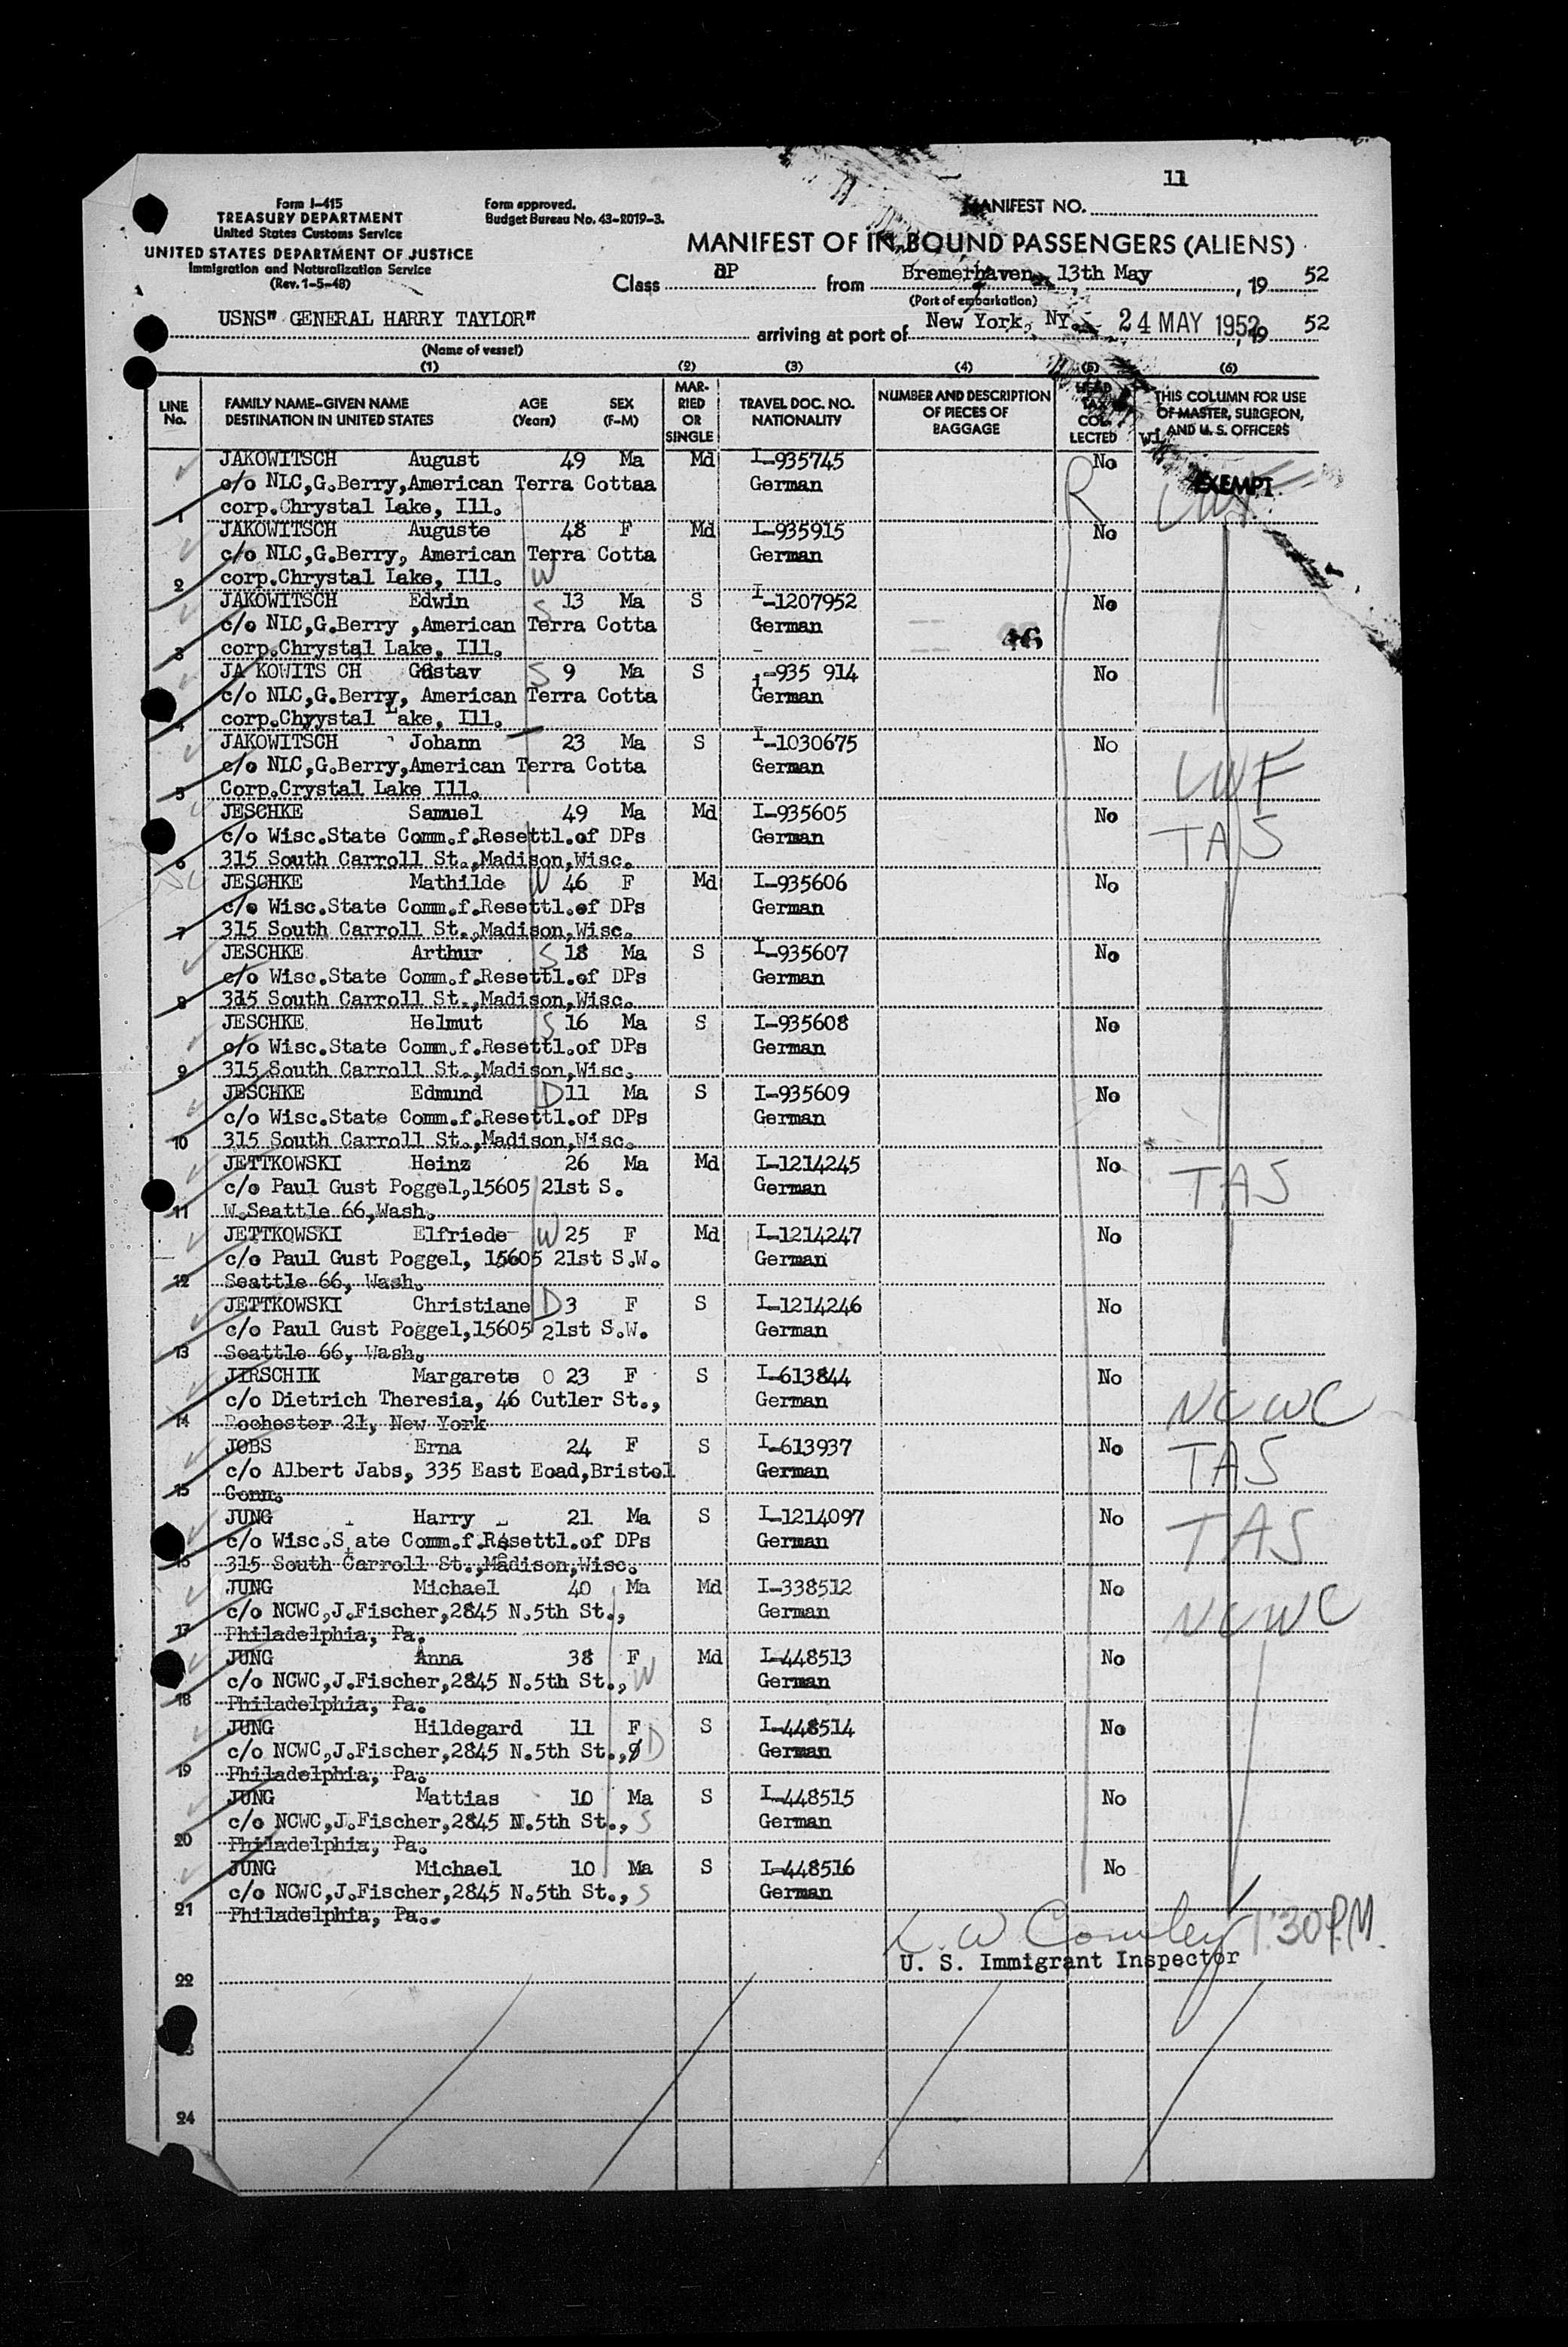 11
Form I-415
TREASURY DEPARTMENT
United States Customs Service
UNITED STATES DEPARTMENT OF JUSTICE
Immigration and Naturalization Service
(Rev. 1-5-48)
Form approved.
Budget Bureau No. 43-R019-3.
MANIFEST NO.
MANIFEST OF IN-BOUND PASSENGERS (ALIENS)
Class DP from Bremerhaven, 13th May, 19 52
(Port of embarkation)
USNS" GENERAL HARRY TAYLOR" arriving at port of New York, Ny. 24 MAY 1952, 19 52
(Name of vessel)
(1) (2) (3) (4) (5) (6)
LINE No. FAMILY NAME-GIVEN NAME DESTINATION IN UNITED STATES AGE (Years) SEX (F-M) MARRIED OR SINGLE TRAVEL DOC. NO. NATIONALITY NUMBER AND DESCRIPTION OF PIECES OF BAGGAGE HEAD TAX COLLECTED THIS COLUMN FOR USE OF MASTER, SURGEON, AND U. S. OFFICERS
JAKOWITSCH August 49 Ma Md I-935745 R No LWF EXEMPT
c/o NLC,G.Berry,American Terra Cottaa German
1 corp.Chrystal Lake, Ill.
JAKOWITSCH Auguste 48 F Md I-935915 No
c/o NLC,G.Berry, American Terra Cotta German
2 corp.Chrystal Lake, Ill. W
JAKOWITSCH Edwin S 13 Ma S I-1207952 No
c/o NLC,G.Berry ,American Terra Cotta German
3 corp.Chrystal Lake, Ill.
JA KOWITS CH Gustav S 9 Ma S I-935 914 No
c/o NLC,G.Berry, American Terra Cotta German
4 corp.Chyystal Lake, Ill.
JAKOWITSCH Johann 23 Ma S I-1030675 No
c/o NLC,G.Berry,American Terra Cotta German LWF
5 Corp.Crystal Lake Ill.
JESCHKE Samuel 49 Ma Md I-935605 No
c/o Wisc.State Comm.f.Resettl.of DPs German TAS
6 315 South Carroll St.,Madison,Wisc.
JESCHKE Mathilde W 46 F Md I-935606 No
c/o Wisc.State Comm.f.Resettl.of DPs German
7 315 South Carroll St.,Madison,Wisc.
JESCHKE Arthur S 18 Ma S I-935607 No
c/o Wisc.State Comm.f.Resettl.of DPs German
8 315 South Carroll St.,Madison,Wisc.
JESCHKE Helmut S 16 Ma S I-935608 No
c/o Wisc.State Comm.f.Resettl.of DPs German
9 315 South Carroll St.,Madison,Wisc.
JESCHKE Edmund D 11 Ma S I-935609 No
c/o Wisc.State Comm.f.Resettl.of DPs German
10 315 South Carroll St.,Madison,Wisc.
JETTKOWSKI Heinz 26 Ma Md I-1214245 No TAS
c/o Paul Gust Poggel,15605 21st S. German
11 W.Seattle 66,Wash.
JETTKOWSKI Elfriede W 25 F Md I-1214247 No
c/o Paul Gust Poggel, 15605 21st S.W. German
12 Seattle 66, Wash.
JETTKOWSKI Christiane D 3 F S I-1214246 No
c/o Paul Gust Poggel,15605 21st S.W. German
13 Seattle 66, Wash.
JIRSCHIK Margarete O 23 F S I-613844 No
c/o Dietrich Theresia, 46 Cutler St., German NCWC
14 Rochester 21, New York
JOBS Erna 24 F S I-613937 No TAS
c/o Albert Jabs, 335 East Eoad,Bristol German
15 Conn.
JUNG Harry 21 Ma S I-1214097 No TAS
c/o Wisc.State Comm.f.Resettl.of DPs German
16 315 South Carroll St.,Madison,Wisc.
JUNG Michael 40 Ma Md I-338512 No
c/o NCWC,J.Fischer,2845 N.5th St., German NCWC
17 Philadelphia, Pa.
JUNG Anna 38 F Md I-448513 No
c/o NCWC,J.Fischer,2845 N.5th St., W German
18 Philadelphia, Pa.
JUNG Hildegard 11 F S I-448514 No
c/o NCWC,J.Fischer,2845 N.5th St., D German
19 Philadelphia, Pa.
JUNG Mattias 10 Ma S I-448515 No
c/o NCWC,J.Fischer,2845 N.5th St., S German
20 Philadelphia, Pa.
JUNG Michael 10 Ma S I-448516 No
c/o NCWC,J.Fischer,2845 N.5th St., S German
21 Philadelphia, Pa..
L. W Cowley 1:30 P.M.
U. S. Immigrant Inspector
22
24